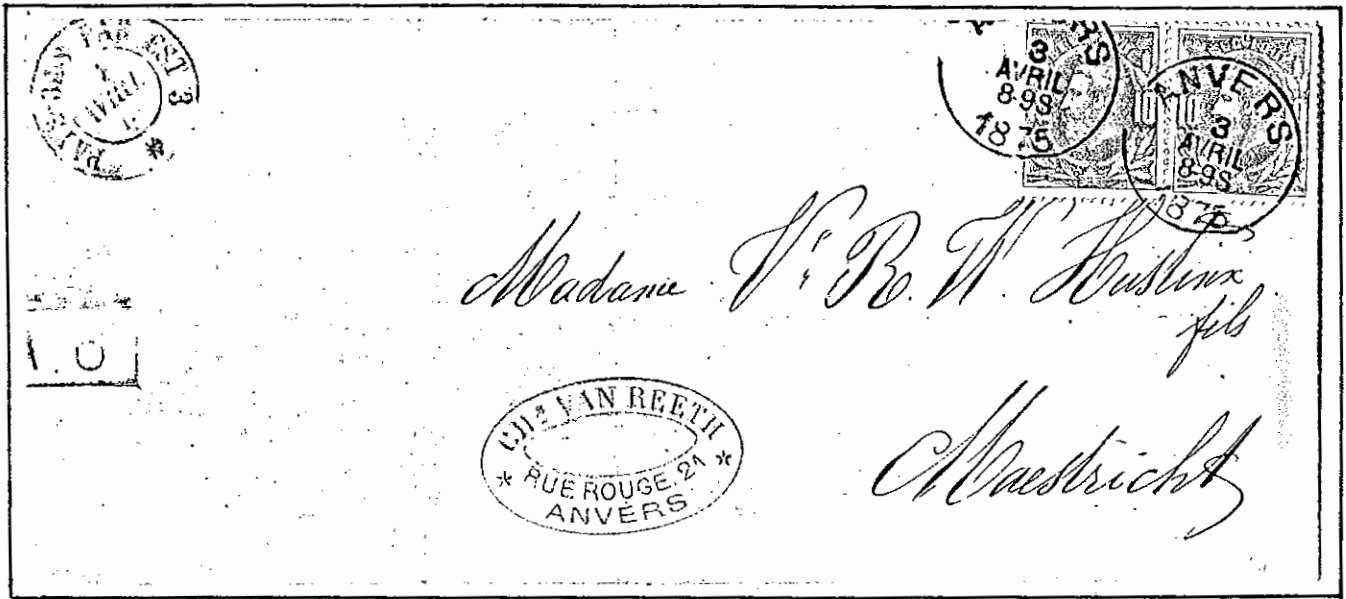 PAR EST 3
AVRIL
ANVERS
3
AVRIL
8-9S
1875
ANVERS
3
AVRIL
8-9S
1875
10
10
Madame Ve R. W. Hustinx
fils
Maestricht
CHs VAN REETH
* RUE ROUGE. 21 *
ANVERS